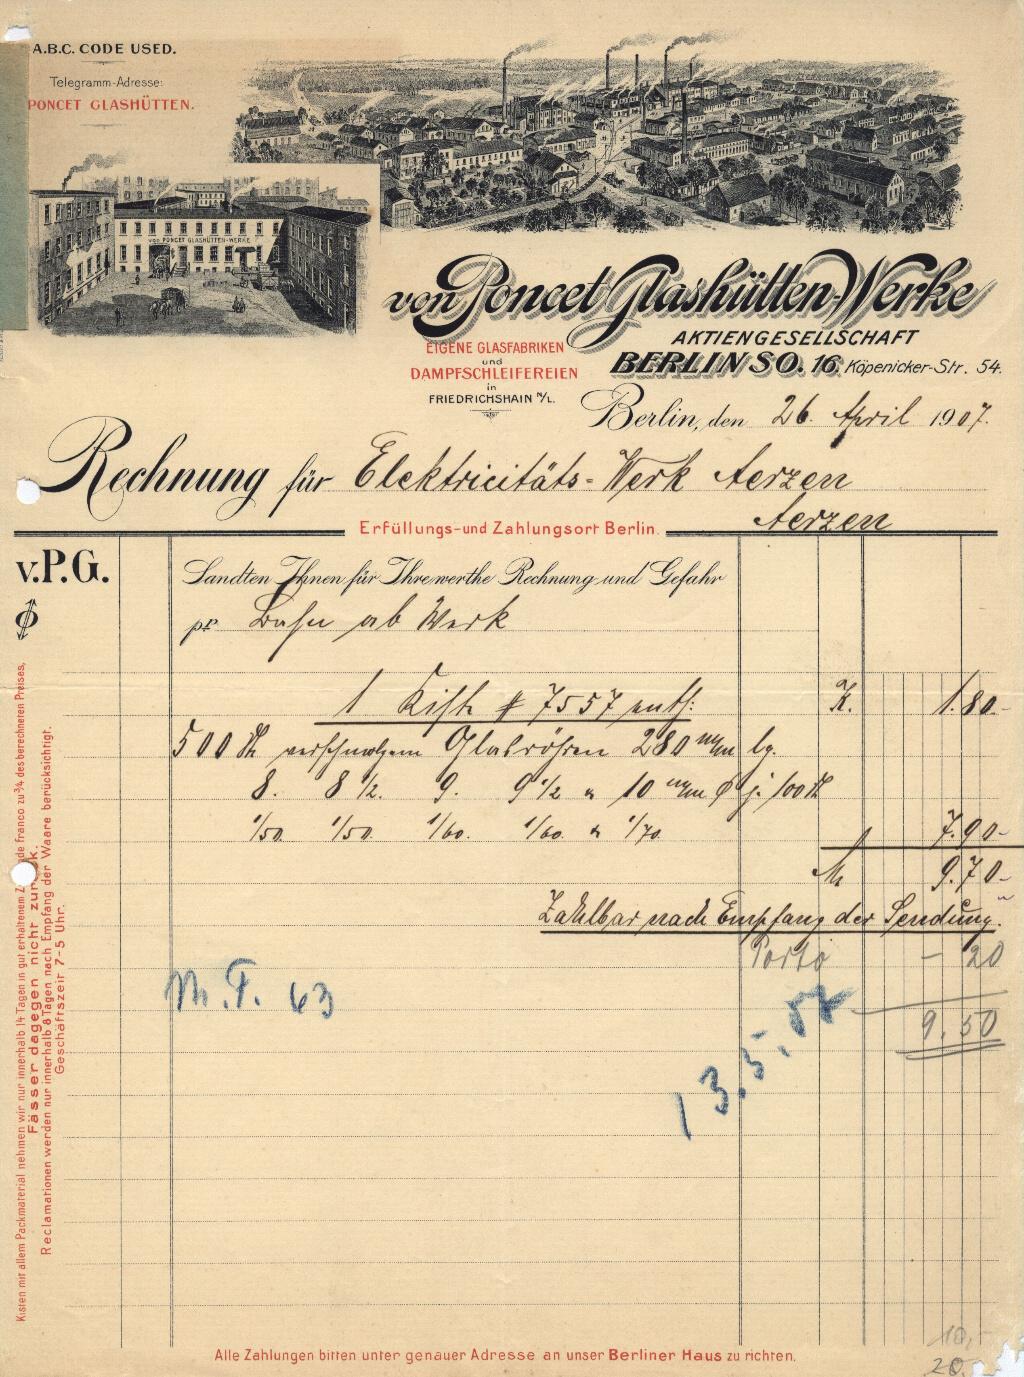 A.B.C. CODE USED.
Telegramm-Adresse:
PONCET GLASHÜTTEN.
von PONCET GLASHÜTTEN-WERKE
von Poncet Glashütten-Werke
AKTIENGESELLSCHAFT
BERLIN SO. 16, Köpenicker-Str. 54.
EIGENE GLASFABRIKEN
und
DAMPFSCHLEIFEREIEN
in
FRIEDRICHSHAIN N/L.
Berlin, den 26. April 1907.
Rechnung für Elektricitäts-Werk Aerzen
Aerzen
Erfüllungs- und Zahlungsort Berlin.
v.P.G.
Sandten Ihnen für Ihre werthe Rechnung und Gefahr
pr Bahn ab Werk
1 Kiste # 7557 enth: K. 1.80-
500 St. verschmolzene Glasröhren 280 m/m lg.
8. 8 1/2. 9. 9 1/2 " 10 m/m ϕ j. 100 St
1/50. 1/50. 1/60. 1/60. " 1/70. 7.90-
M 9.70-
Zahlbar nach Empfang der Sendung.
Porto - 20
9.50
M.F. 63
13.5.07
10,-
20.
Kisten mit allem Packmaterial nehmen wir nur innerhalb 14 Tagen in gut erhaltenem de franco zu 3/4 des berechneten Preises,
Fässer dagegen nicht zurück.
Reclamationen werden nur innerhalb 8 Tagen nach Empfang der Waare berücksichtigt.
Geschäftszeit 7-5 Uhr.
Alle Zahlungen bitten unter genauer Adresse an unser Berliner Haus zu richten.